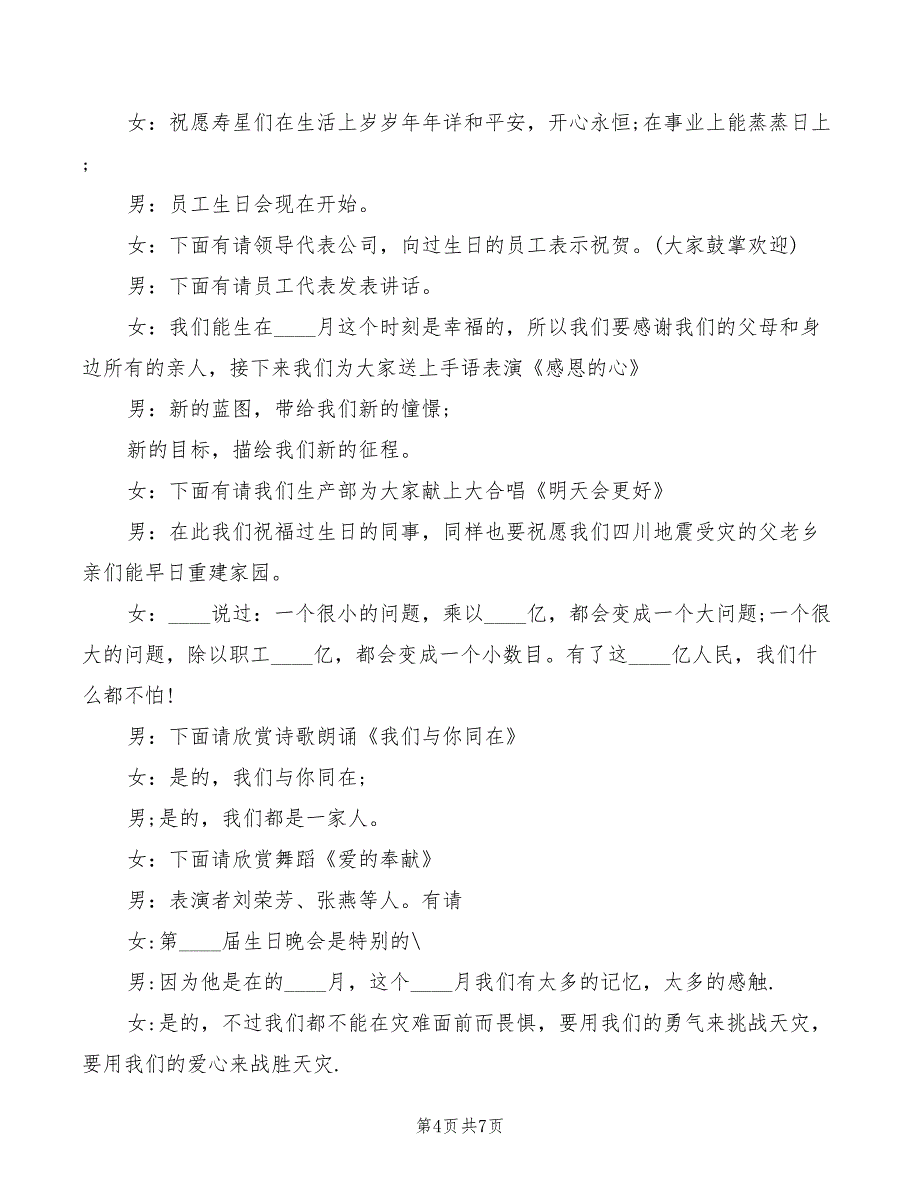 女：祝愿寿星们在生活上岁岁年年详和平安，开心永恒;在事业上能蒸蒸日上
;
男：员工生日会现在开始。
女：下面有请领导代表公司，向过生日的员工表示祝贺。(大家鼓掌欢迎)
男：下面有请员工代表发表讲话。
女：我们能生在____月这个时刻是幸福的，所以我们要感谢我们的父母和身
边所有的亲人，接下来我们为大家送上手语表演《感恩的心》
男：新的蓝图，带给我们新的憧憬;
新的目标，描绘我们新的征程。
女：下面有请我们生产部为大家献上大合唱《明天会更好》
男：在此我们祝福过生日的同事，同样也要祝愿我们四川地震受灾的父老乡
亲们能早日重建家园。
女：____说过：一个很小的问题，乘以____亿，都会变成一个大问题;一个很
大的问题，除以职工____亿，都会变成一个小数目。有了这____亿人民，我们什
么都不怕!
男：下面请欣赏诗歌朗诵《我们与你同在》
女：是的，我们与你同在;
男;是的，我们都是一家人。
女：下面请欣赏舞蹈《爱的奉献》
男：表演者刘荣芳、张燕等人。有请
女:第____届生日晚会是特别的\
男:因为他是在的____月，这个____月我们有太多的记忆，太多的感触.
女:是的，不过我们都不能在灾难面前而畏惧，要用我们的勇气来挑战天灾，
要用我们的爱心来战胜天灾.
第4页共7页